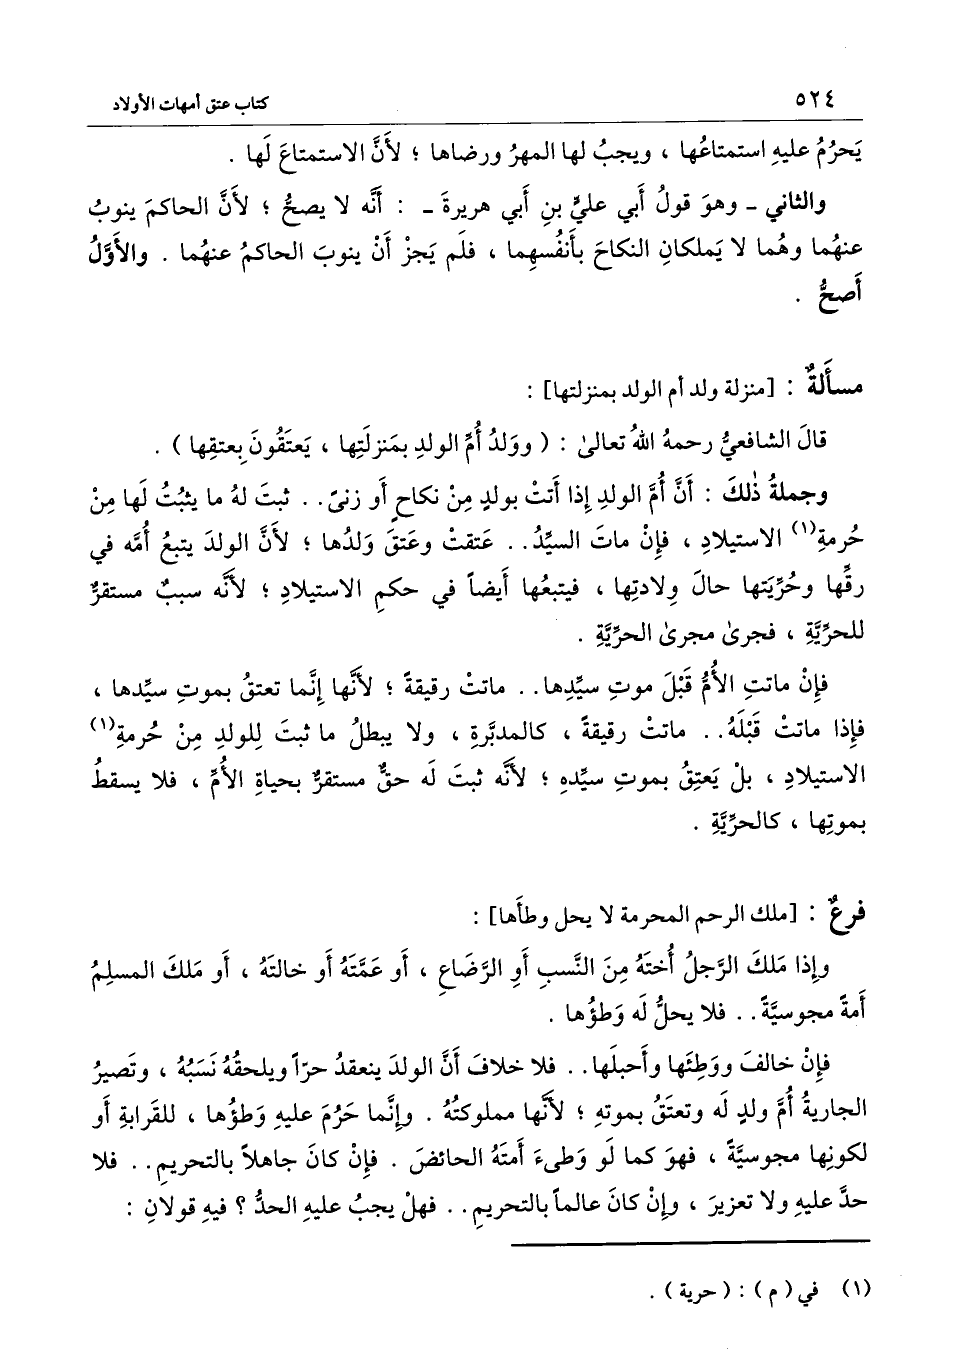 ٥٢٤
كتاب عتق أمهات الأولاد
يَحرُمُ عليهِ استمتاعُها ، ويجبُ لها المهرُ ورضاها ؛ لأَنَّ الاستمتاعَ لَها .
والثاني ـ وهوَ قولُ أَبي عليِّ بنِ أَبي هريرةَ ـ : أَنَّه لا يصحُّ ؛ لأَنَّ الحاكمَ ينوبُ
عنهُما وهُما لا يَملكانِ النكاحَ بأَنفُسهِما ، فلَم يَجزْ أَنْ ينوبَ الحاكمُ عنهُما . والأَوَّلُ
أَصحُّ .
مسأَلةٌ : [منزلة ولد أم الولد بمنزلتها] :
قالَ الشافعيُّ رحمهُ اللهُ تعالىٰ : ( ووَلدُ أُمِّ الولدِ بمَنزلَتِها ، يَعتَقُونَ بِعتقِها ) .
وجملةُ ذٰلكَ : أَنَّ أُمَّ الولدِ إِذا أَتتْ بولدٍ مِنْ نكاحٍ أَو زنىً . . ثبتَ لهُ ما يثبُتُ لَها مِنْ
حُرمةِ(١) الاستيلادِ ، فإِنْ ماتَ السيِّدُ . . عَتقتْ وعتقَ وَلدُها ؛ لأَنَّ الولدَ يتبعُ أُمَّه في
رقِّها وحُرِّيَتها حالَ وِلادتِها ، فيتبعُها أَيضاً في حكمِ الاستيلادِ ؛ لأَنَّه سببٌ مستقرٌّ
للحرِّيَّةِ ، فجرىٰ مجرىٰ الحرِّيَّةِ .
فإِنْ ماتتِ الأُمُّ قَبْلَ موتِ سيِّدِها . . ماتتْ رقيقةً ؛ لأَنَّها إِنَّما تعتقُ بموتِ سيِّدها ،
فإِذا ماتتْ قَبْلَهُ . . ماتتْ رقيقةً ، كالمدبَّرةِ ، ولا يبطلُ ما ثبتَ لِلولدِ مِنْ حُرمةِ(١)
الاستيلادِ ، بلْ يَعتِقُ بموتِ سيِّدهِ ؛ لأَنَّه ثبتَ لَه حقٌّ مستقرٌّ بحياةِ الأُمِّ ، فلا يسقطُ
بموتِها ، كالحرِّيَّةِ .
فرعٌ : [ملك الرحم المحرمة لا يحل وطأها] :
وإِذا مَلكَ الرَّجلُ أُختَهُ مِنَ النَّسبِ أَوِ الرَّضَاعِ ، أَو عَمَّتَهُ أَو خالتَهُ ، أَو مَلكَ المسلِمُ
أَمةً مجوسيَّةً . . فلا يحلُّ لَه وَطؤُها .
فإِنْ خالفَ ووَطِئَها وأَحبلَها . . فلا خلافَ أَنَّ الولدَ ينعقدُ حرّاً ويلحقُهُ نَسَبُهُ ، وتَصيرُ
الجاريةُ أُمَّ ولدٍ لَه وتعتَقُ بموتهِ ؛ لأَنَّها مملوكتُهُ . وإِنَّما حَرُمَ عليهِ وَطؤُها ، للقرابةِ أَو
لكونِها مجوسيَّةً ، فهوَ كما لَو وَطىءَ أَمتَهُ الحائضَ . فإِنْ كانَ جاهلاً بالتحريمِ . . فلا
حدَّ عليهِ ولا تعزيرَ ، وإِنْ كانَ عالماً بالتحريمِ . . فهلْ يجبُ عليهِ الحدُّ ؟ فيهِ قولانِ :
(١) في ( م ) : ( حرية ) .